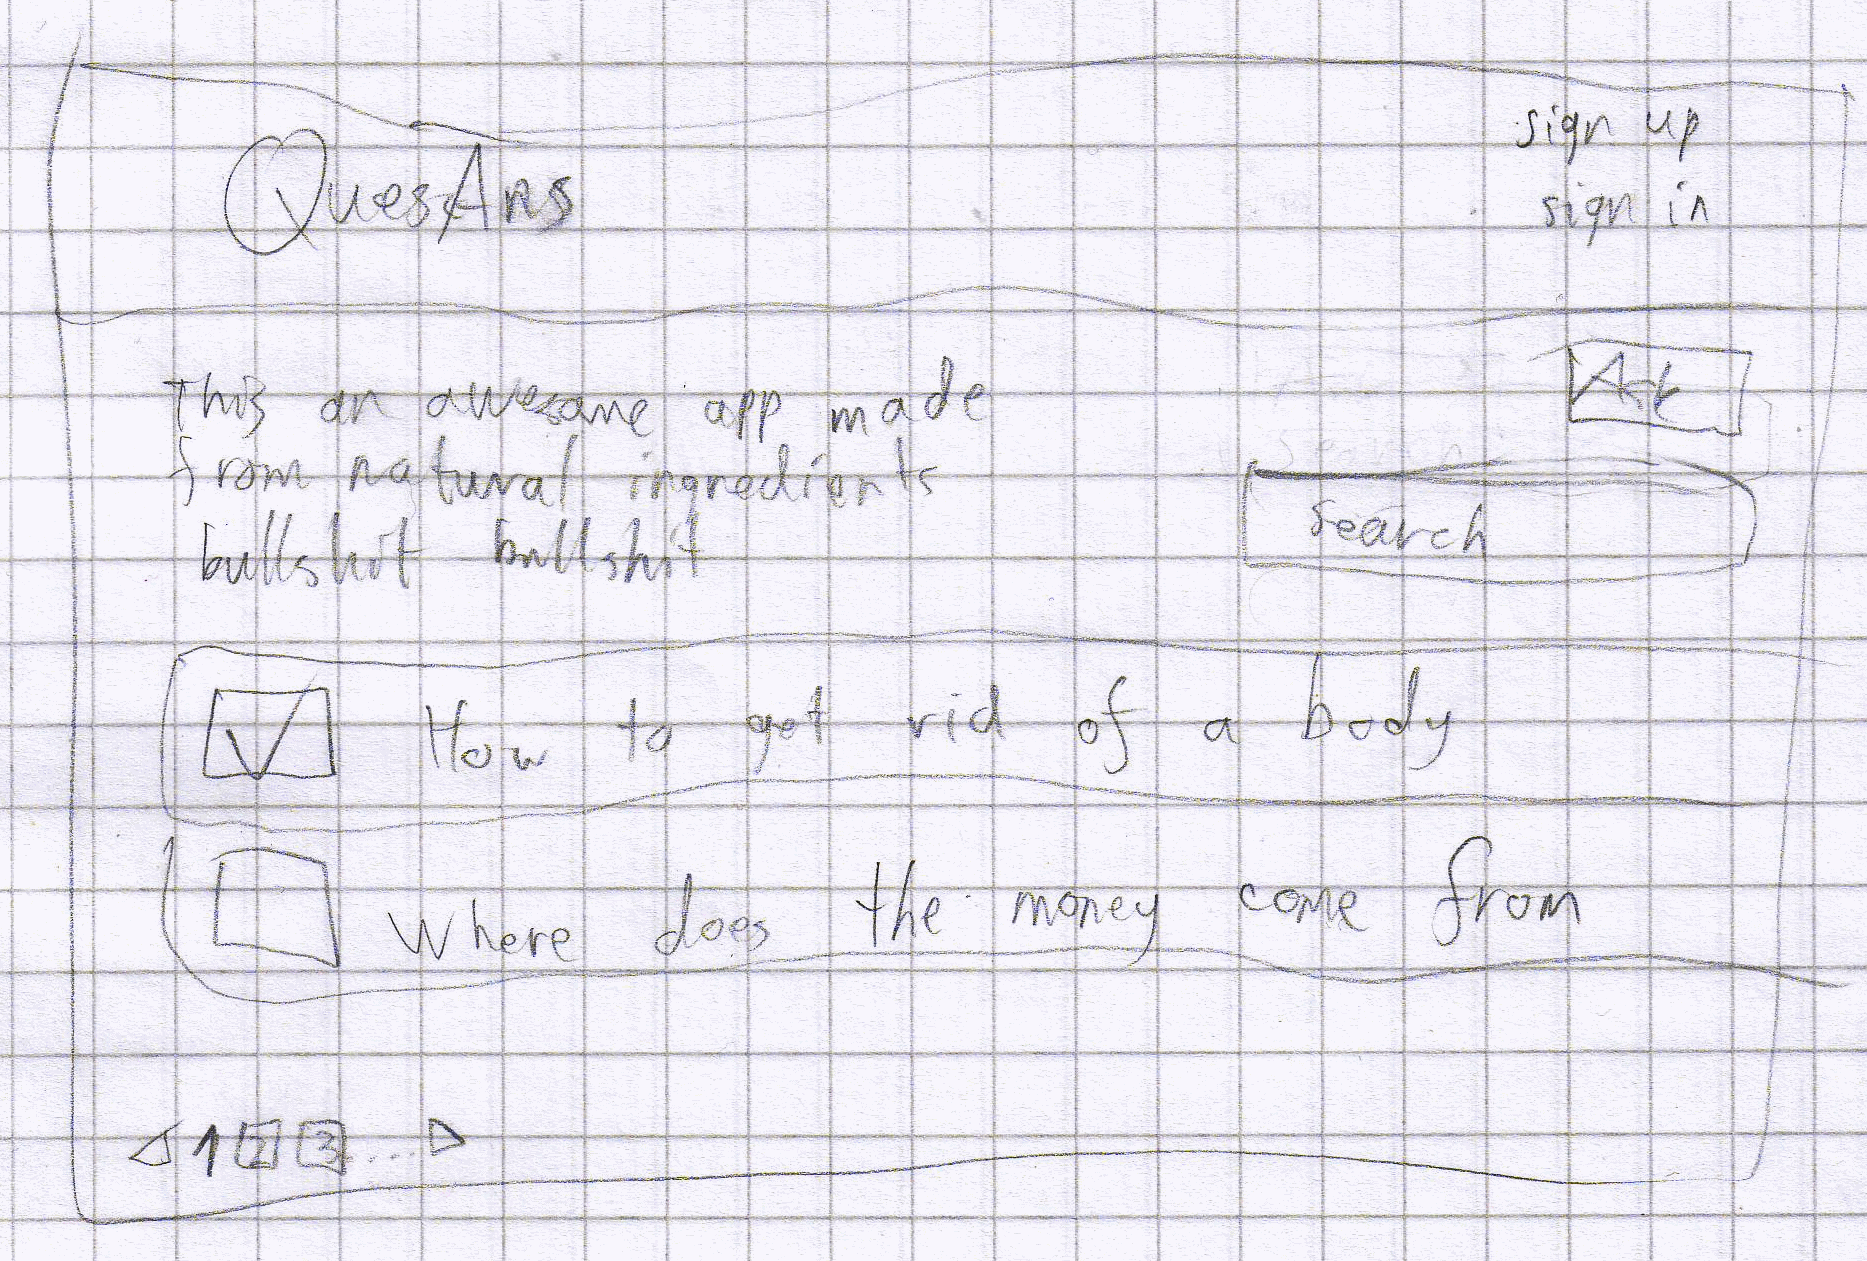 QuesAns
sign up
sign in
This an awesome app made
from natural ingredients
bullshit bullshit
Ask
Search
How to get rid of a body
Where does the money come from
1 2 3 ....